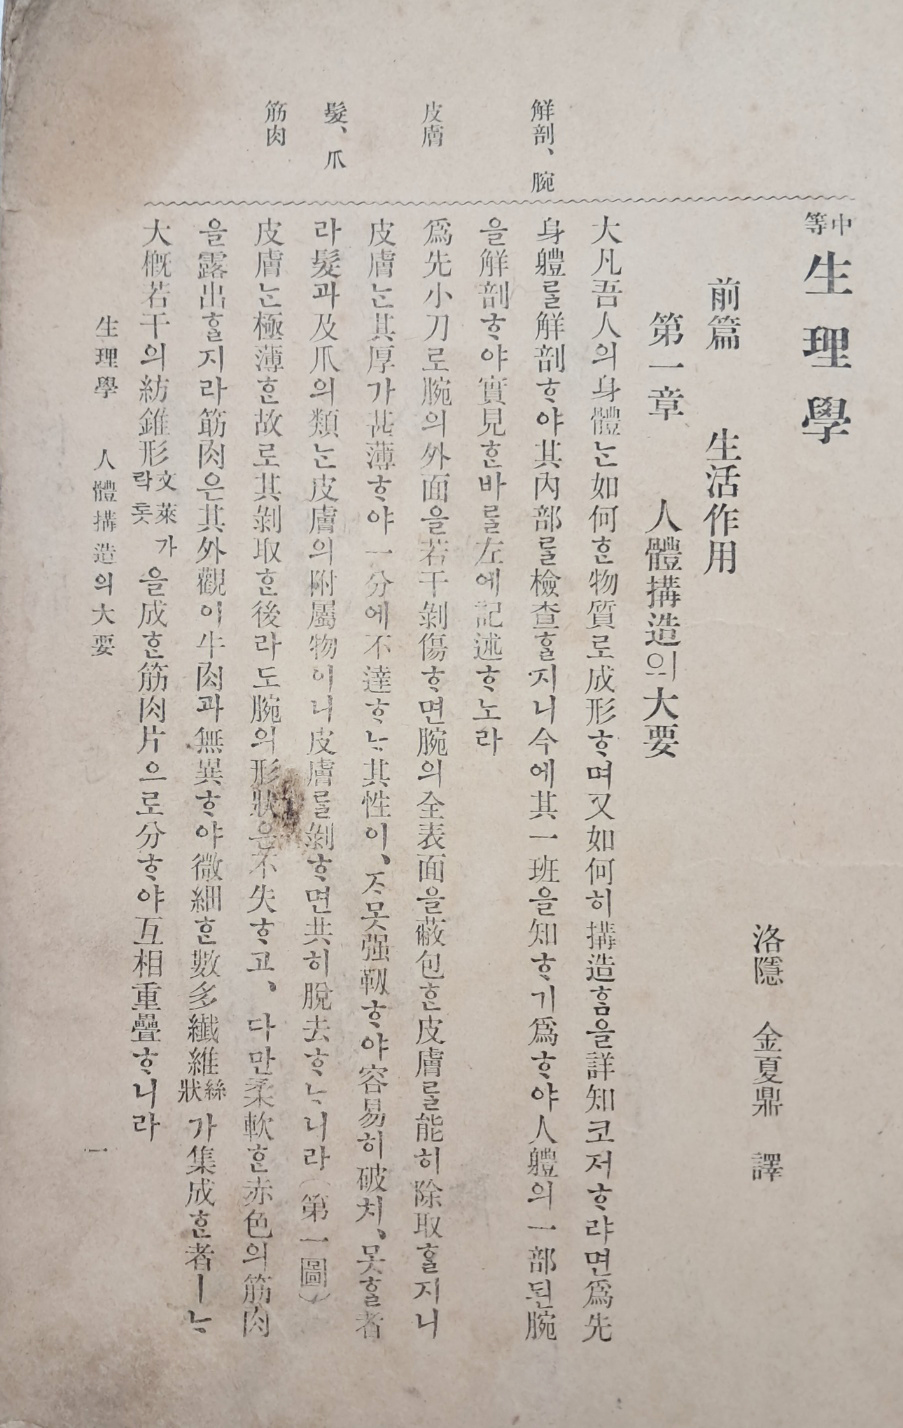 中等 生理學
洛隱 金夏鼎 譯
前篇 生活作用
第一章 人體搆造의大要
大凡吾人의身體ᄂᆞᆫ如何ᄒᆞᆫ物質로成形ᄒᆞ며又如何히搆造ᄒᆞᆷ을詳知코저ᄒᆞ랴면爲先
解剖、腕
身軆ᄅᆞᆯ解剖ᄒᆞ야其內部ᄅᆞᆯ檢查ᄒᆞᆯ지니今에其一班을知ᄒᆞ기爲ᄒᆞ야人軆의一部된腕
을解剖ᄒᆞ야實見ᄒᆞᆫ바ᄅᆞᆯ左에記述ᄒᆞ노라
皮膚
爲先小刀로腕의外面을若干剝傷ᄒᆞ면腕의全表面을蔽包ᄒᆞᆫ皮膚ᄅᆞᆯ能히除取ᄒᆞᆯ지니
皮膚ᄂᆞᆫ其厚가甚薄ᄒᆞ야一分에不達ᄒᆞᄂᆞ其性이、ᄌᆞ못强靱ᄒᆞ야容易히破치、못ᄒᆞᆯ者
髮、爪
라髮과及爪의類ᄂᆞᆫ皮膚의附屬物이니皮膚ᄅᆞᆯ剝ᄒᆞ면共히脫去ᄒᆞᄂᆞ니라(第一圖)
筋肉
皮膚ᄂᆞᆫ極薄ᄒᆞᆫ故로其剝取ᄒᆞᆫ後라도腕의形狀은不失ᄒᆞ고、다만柔軟ᄒᆞᆫ赤色의筋肉
을露出ᄒᆞᆯ지라筋肉은其外觀이牛肉과無異ᄒᆞ야微細ᄒᆞᆫ數多纖維絲狀가集成ᄒᆞᆫ者ㅣᄂᆞ
大槪若干의紡錐形文萊가락톳을成ᄒᆞᆫ筋肉片으로分ᄒᆞ야互相重疊ᄒᆞ니라
生理學 人體搆造의大要
一